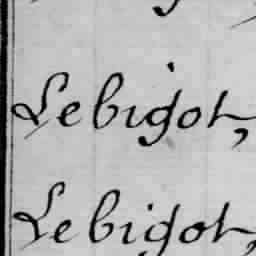 Lebigot,
Lebigot,